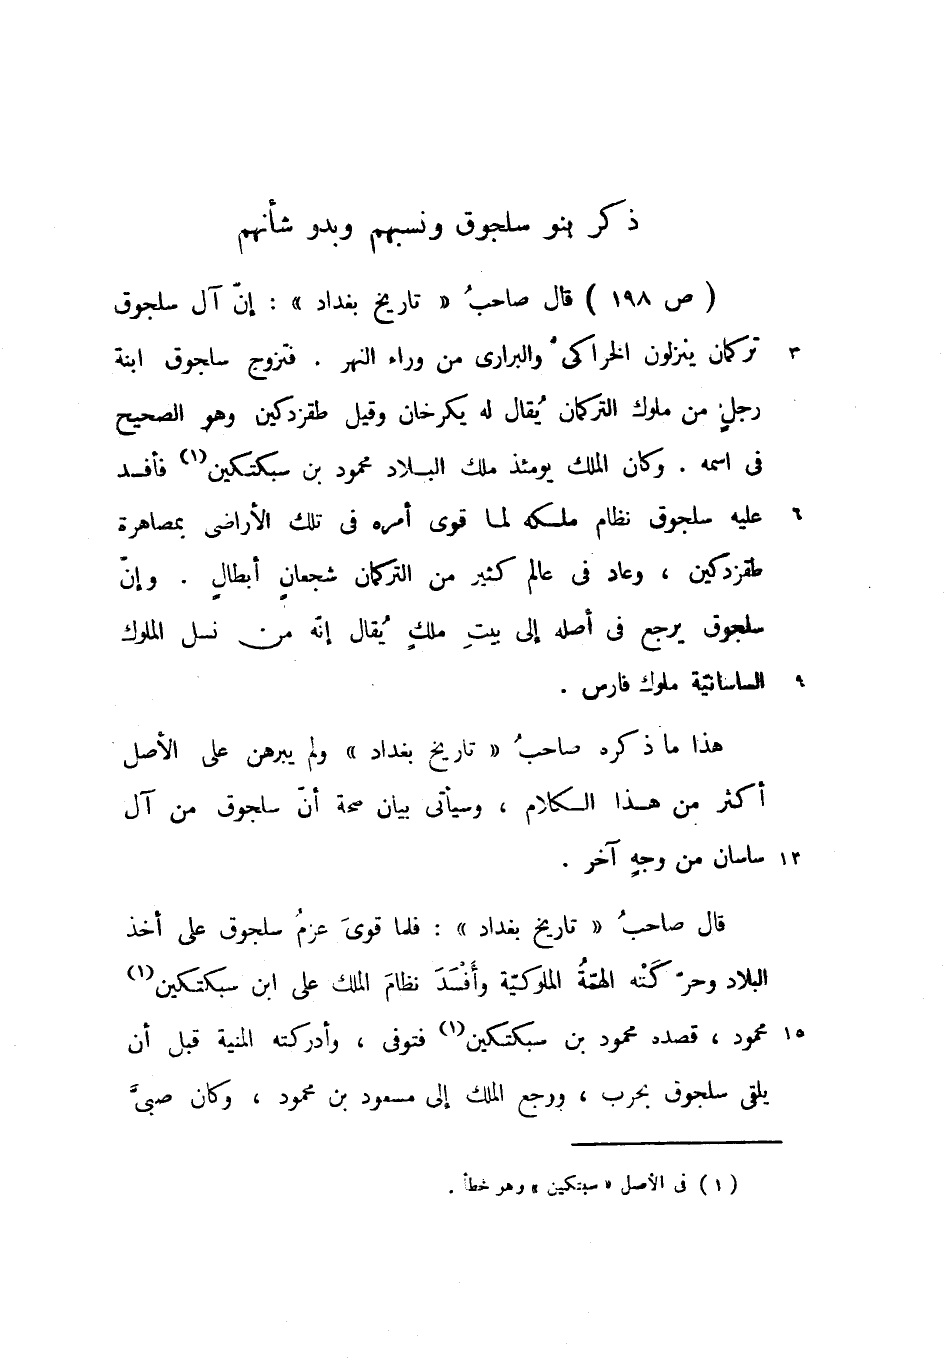 ذكر بنو سلجوق ونسبهم وبدو شأنهم
( ص ١٩٨ ) قال صاحبُ « تاريخ بغداد » : إنّ آل سلجوق
٣ تركمان ينزلون الخراكى ُ والبرارى من وراء النهر . فتزوج سلجوق ابنة
رجلٍ من ملوك التركمان يُقال له يكرخان وقيل طقزدكين وهو الصحيح
فى اسمه . وكان الملك يومئذ ملك البلاد محمود بن سبكتكين(١) فأفسد
٦ عليه سلجوق نظام ملكه لما قوى أمره فى تلك الأراضى بمصاهرة
طقزدكين ، وعاد فى عالم كثير من التركمان شجعانٍ أبطالٍ . وإنّ
سلجوق يرجع فى أصله إلى بيتِ ملكٍ يُقال إنّه من نسل الملوك
٩ الساسانيّة ملوك فارس .
هذا ما ذكره صاحبُ « تاريخ بغداد » ولم يبرهن على الأصل
أكثر من هذا الكلام ، وسيأتى بيان صحة أنّ سلجوق من آل
١٢ ساسان من وجهٍ آخر .
قال صاحبُ « تاريخ بغداد » : فلما قوىَ عزمُ سلجوق على أخذ
البلاد وحرّكَتْه الهمّةُ الملوكيّة وأَفْسَدَ نظامَ الملك على ابن سبكتكين(١)
١٥ محمود ، قصده محمود بن سبكتكين(١) فتوفى ، وأدركته المنية قبل أن
يلقى سلجوق بحرب ، ورجع الملك إلى مسعود بن محمود ، وكان صبىًّ
(١) فى الأصل « سبتكين » وهو خطأ .